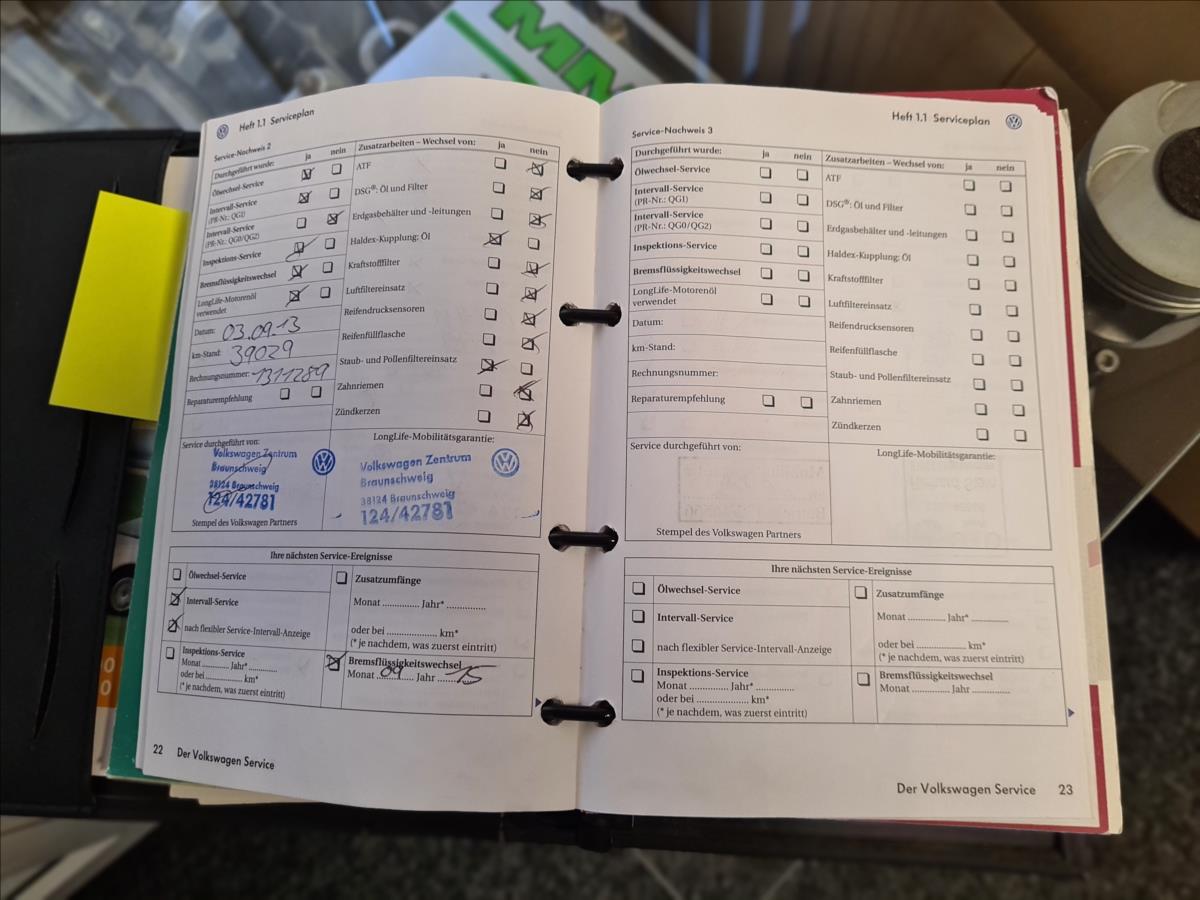 MM
Heft 1.1 Serviceplan
Service-Nachweis 2
Durchgeführt wurde: ja nein
Ölwechsel-Service
Intervall-Service
(PR-Nr.: QG1)
Intervall-Service
(PR-Nr.: QG0/QG2)
Inspektions-Service
Bremsflüssigkeitswechsel
LongLife-Motorenöl
verwendet
Datum: 03.09.13
km-Stand: 39029
Rechnungsnummer: 1311289
Reparaturempfehlung
Zusatzarbeiten – Wechsel von: ja nein
ATF
DSG®: Öl und Filter
Erdgasbehälter und -leitungen
Haldex-Kupplung: Öl
Kraftstofffilter
Luftfiltereinsatz
Reifendrucksensoren
Reifenfüllflasche
Staub- und Pollenfiltereinsatz
Zahnriemen
Zündkerzen
Service durchgeführt von:
Volkswagen Zentrum
Braunschweig
38124 Braunschweig
124/42781
Stempel des Volkswagen Partners
LongLife-Mobilitätsgarantie:
Volkswagen Zentrum
Braunschweig
38124 Braunschweig
124/42781
Ihre nächsten Service-Ereignisse
Ölwechsel-Service
Intervall-Service
nach flexibler Service-Intervall-Anzeige
Inspektions-Service
Monat ........... Jahr* ...........
oder bei ..................... km*
(* je nachdem, was zuerst eintritt)
Zusatzumfänge
Monat .............. Jahr* ...............
oder bei .................... km*
(* je nachdem, was zuerst eintritt)
Bremsflüssigkeitswechsel
Monat 09 Jahr 15
22 Der Volkswagen Service
Heft 1.1 Serviceplan
Service-Nachweis 3
Durchgeführt wurde: ja nein
Ölwechsel-Service
Intervall-Service
(PR-Nr.: QG1)
Intervall-Service
(PR-Nr.: QG0/QG2)
Inspektions-Service
Bremsflüssigkeitswechsel
LongLife-Motorenöl
verwendet
Datum:
km-Stand:
Rechnungsnummer:
Reparaturempfehlung
Zusatzarbeiten – Wechsel von: ja nein
ATF
DSG®: Öl und Filter
Erdgasbehälter und -leitungen
Haldex-Kupplung: Öl
Kraftstofffilter
Luftfiltereinsatz
Reifendrucksensoren
Reifenfüllflasche
Staub- und Pollenfiltereinsatz
Zahnriemen
Zündkerzen
Service durchgeführt von:
Stempel des Volkswagen Partners
LongLife-Mobilitätsgarantie:
Ihre nächsten Service-Ereignisse
Ölwechsel-Service
Intervall-Service
nach flexibler Service-Intervall-Anzeige
Inspektions-Service
Monat .............. Jahr* ..............
oder bei ........................ km*
(* je nachdem, was zuerst eintritt)
Zusatzumfänge
Monat .............. Jahr* ..............
oder bei .................... km*
(* je nachdem, was zuerst eintritt)
Bremsflüssigkeitswechsel
Monat .............. Jahr ..............
Der Volkswagen Service 23